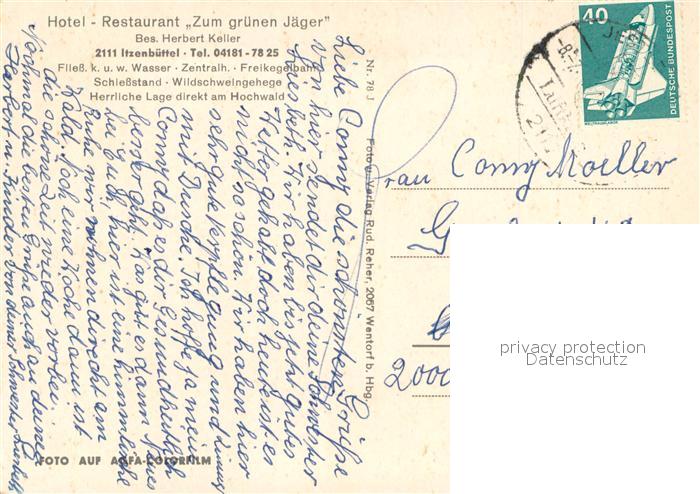 Hotel - Restaurant „Zum grünen Jäger"
Bes. Herbert Keller
2111 Itzenbüttel · Tel. 04181 - 78 25
Fließ. k. u. w. Wasser · Zentralh. · Freikegelbahn
Schießstand · Wildschweingehege
Herrliche Lage direkt am Hochwald
Liebe Conny die schönsten Grüße
von hier sendet dir deine Schwester
Lisbeth. Wir haben bis jetzt gutes
Wetter gehabt doch heute ist es
nicht so schön. Wir haben hier
sehr gute Verpflegung und
mit Dusche. Ich hoffe ja mein
Conny daß es dir Gesundheitlich
besser geht. Was gibt es denn Neues
bei Euch, hier ist eine himmlische
Ruhe wir wohnen direkt am
Wald. Noch eine Woche dann ist
die schöne Zeit wieder vorbei.
Nochmal die besten Grüße auch an deinen
Herbert u. Kinder von deiner Schwester Lisbeth
FOTO AUF AGFA-COLORFILM
Nr. 78 J
Foto u. Verlag Rud. Reher, 2057 Wentorf b. Hbg.
40
DEUTSCHE BUNDESPOST
WELTRAUMLABOR
Frau Conny Moeller
2000
privacy protection
Datenschutz